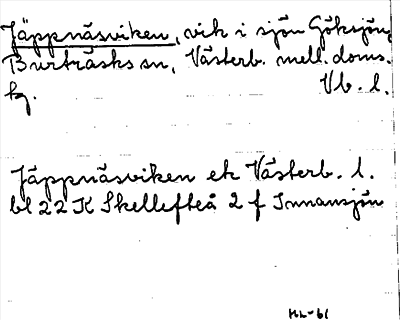 Jäppnäsviken, vik i sjön Göksjön,
Burträsks sn, Västerb. mell. doms.
kg. Vb. l.
Jäppnäsviken ek Västerb. l.
bl 22 K Skellefteå 2 f Innansjön